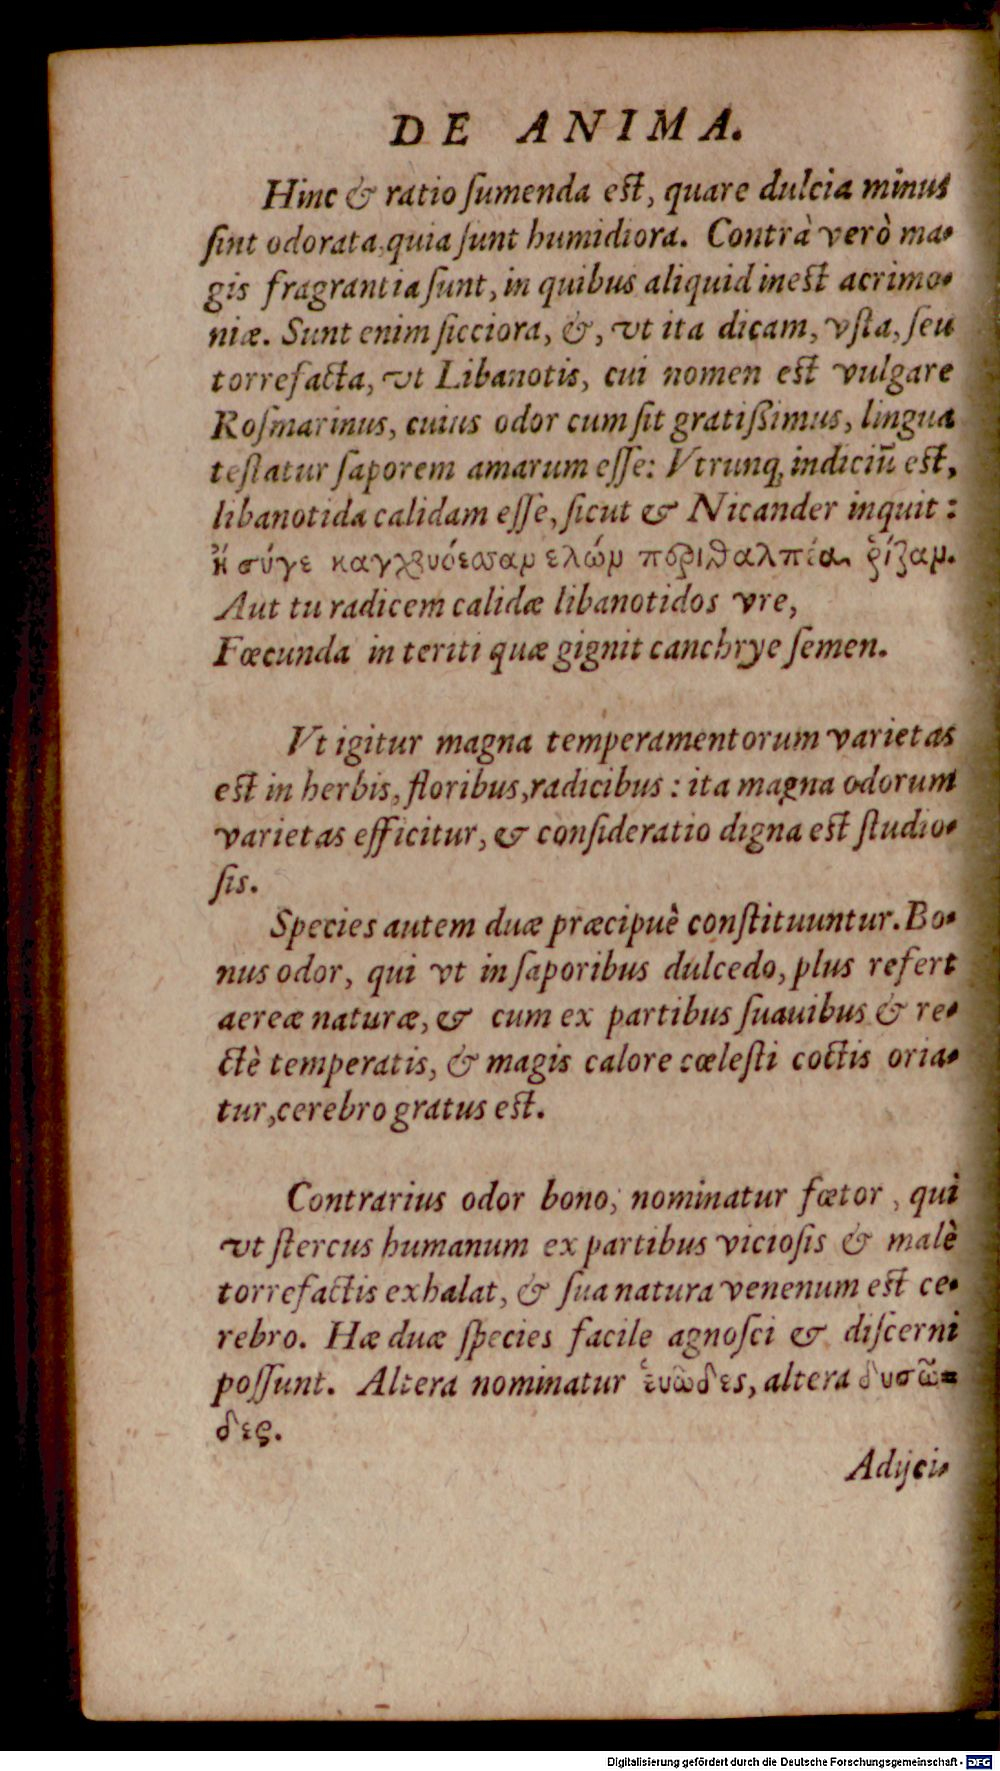 DE ANIMA.
Hinc & ratio ſumenda eſt, quare dulcia minus
ſint odorata, quia ſunt humidiora. Contrà verò ma-
gis fragrantia ſunt, in quibus aliquid ineſt acrimo-
niæ. Sunt enim ſicciora, &, vt ita dicam, vſta, ſeu
torrefacta, vt Libanotis, cui nomen eſt vulgare
Roſmarinus, cuius odor cum ſit gratiſſimus, lingua
teſtatur ſaporem amarum eſſe: Vtrunq; indiciũ eſt,
libanotida calidam eſſe, ſicut & Nicander inquit:
ἢ σύγε καγχρυόεσσαν ελών περιθαλπέα ῥίζαν.
Aut tu radicem calidæ libanotidos vre,
Fœcunda in teriti quæ gignit canchrye ſemen.
Vt igitur magna temperamentorum varietas
eſt in herbis, floribus, radicibus: ita magna odorum
varietas efficitur, & conſideratio digna eſt ſtudio-
ſis.
Species autem duæ præcipuè conſtituuntur. Bo-
nus odor, qui vt in ſaporibus dulcedo, plus refert
aereæ naturæ, & cum ex partibus ſuauibus & re-
ctè temperatis, & magis calore cœleſti coctis oria-
tur, cerebro gratus eſt.
Contrarius odor bono, nominatur fœtor, qui
vt ſtercus humanum ex partibus vicioſis & malè
torrefactis exhalat, & ſua natura venenum eſt ce-
rebro. Hæ duæ ſpecies facile agnoſci & diſcerni
poſſunt. Altera nominatur ἐυῶδες, altera δυσῶ-
δες.
Adijci-
Digitalisierung gefördert durch die Deutsche Forschungsgemeinschaft - DFG